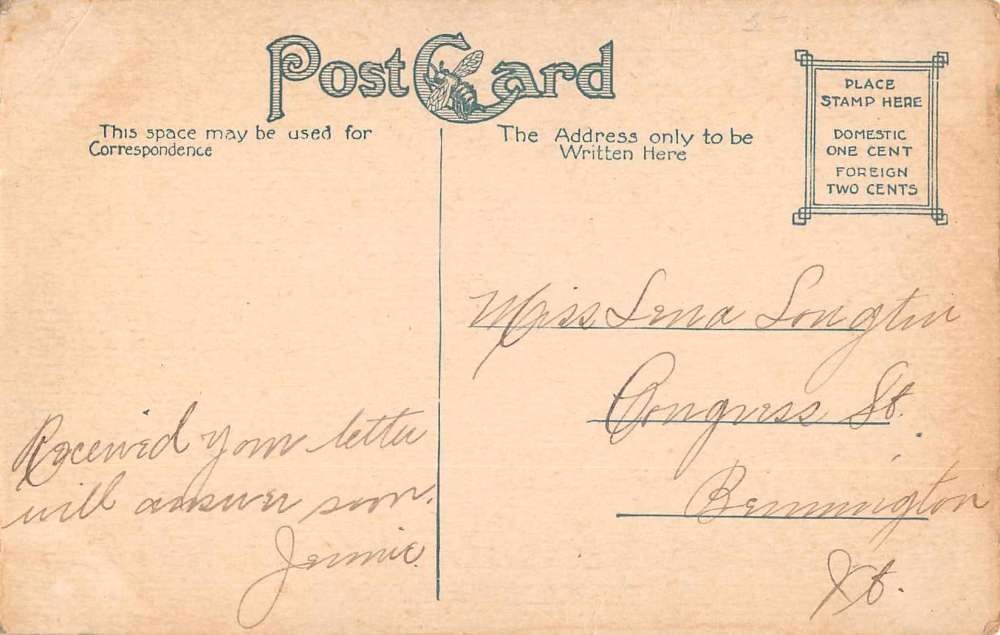 Post Card
This space may be used for
Correspondence
The Address only to be
Written Here
PLACE
STAMP HERE
DOMESTIC
ONE CENT
FOREIGN
TWO CENTS
Miss Lena Longtin
Congress St.
Bennington
Vt.
Received your letter
will answer soon.
Jennie